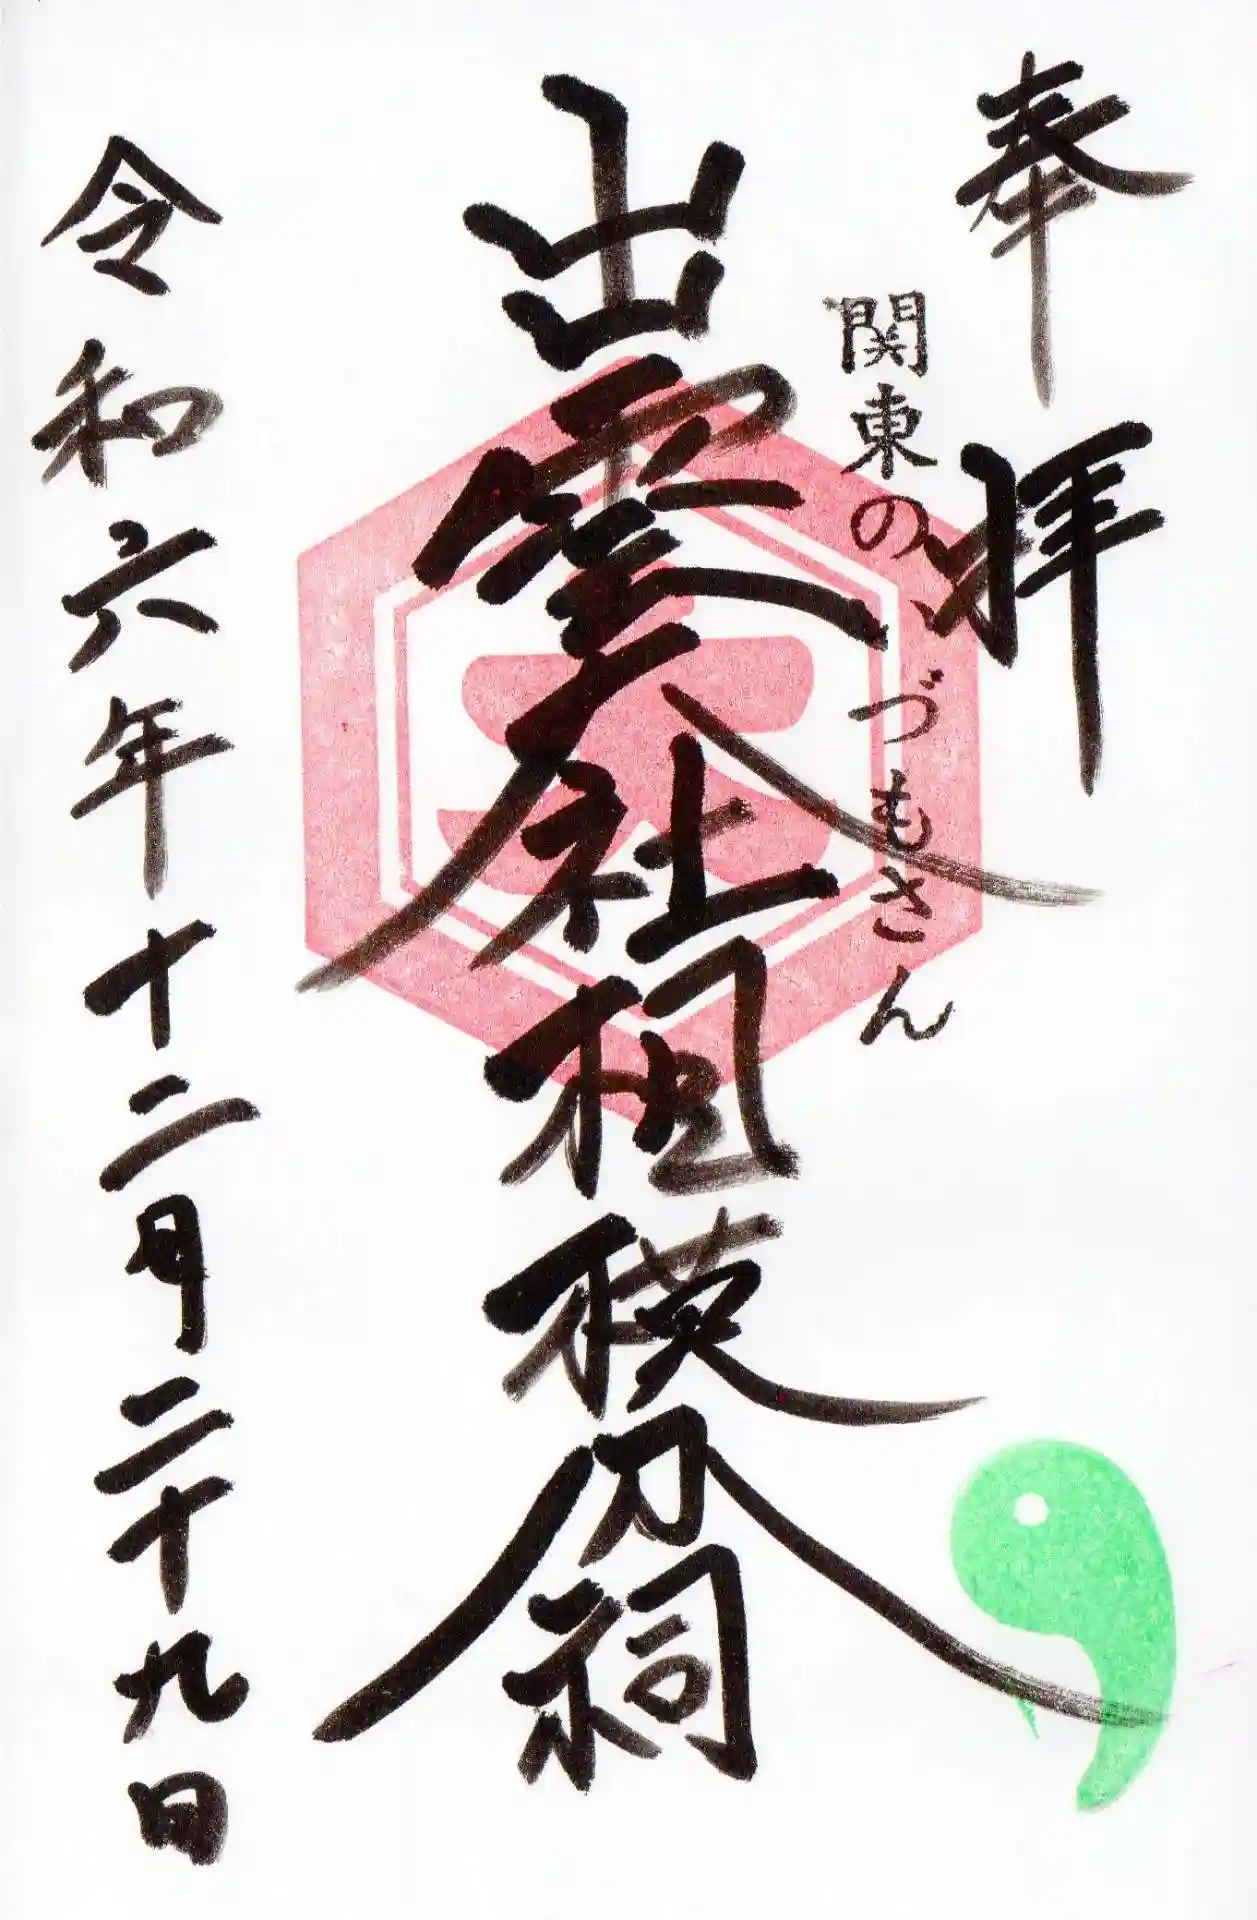 奉拝
関東のいづもさん
出雲大社相模分祠
大
令和六年十二月二十九日